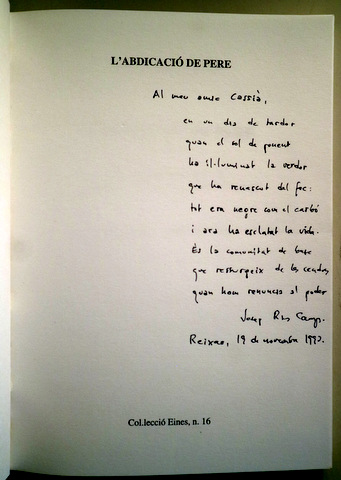 L'ABDICACIÓ DE PERE
Al meu amic Cassià,
en un dia de tardor
quan el sol de ponent
ha il·luminat la verdor
que ha renascut del foc:
tot era negre com el carbó
i ara ha esclatat la vida.
És la comunitat de base
que resurgeix de les cendres
quan hom renuncia al poder
Josep Rius Camps.
Reixac, 19 de novembre
Col.lecció Eines, n. 16